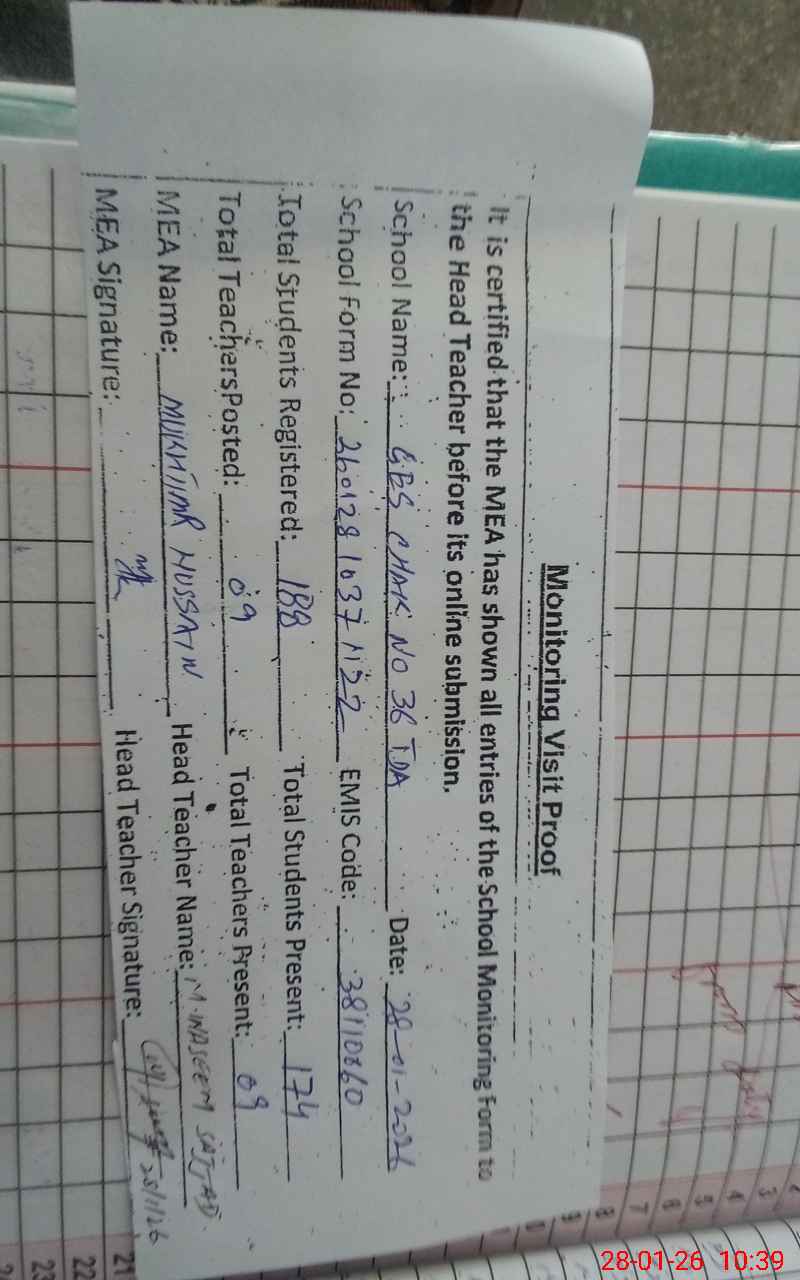 Monitoring Visit Proof
It is certified that the MEA has shown all entries of the School Monitoring Form to
the Head Teacher before its online submission.
School Name: GBS CHAK NO 36 TDA Date: 28-01-2026
School Form No: 26012810371122 EMIS Code: 38110060
Total Students Registered: 188 Total Students Present: 174
Total TeachersPosted: 09 Total Teachers Present: 09
MEA Name: MUKHTIAR HUSSAIN Head Teacher Name: M. WASEEM SAJJAD.
MEA Signature: Head Teacher Signature: 28/1/26
3
4
5
6
7
8
9
21
22
23
28-01-26 10:39